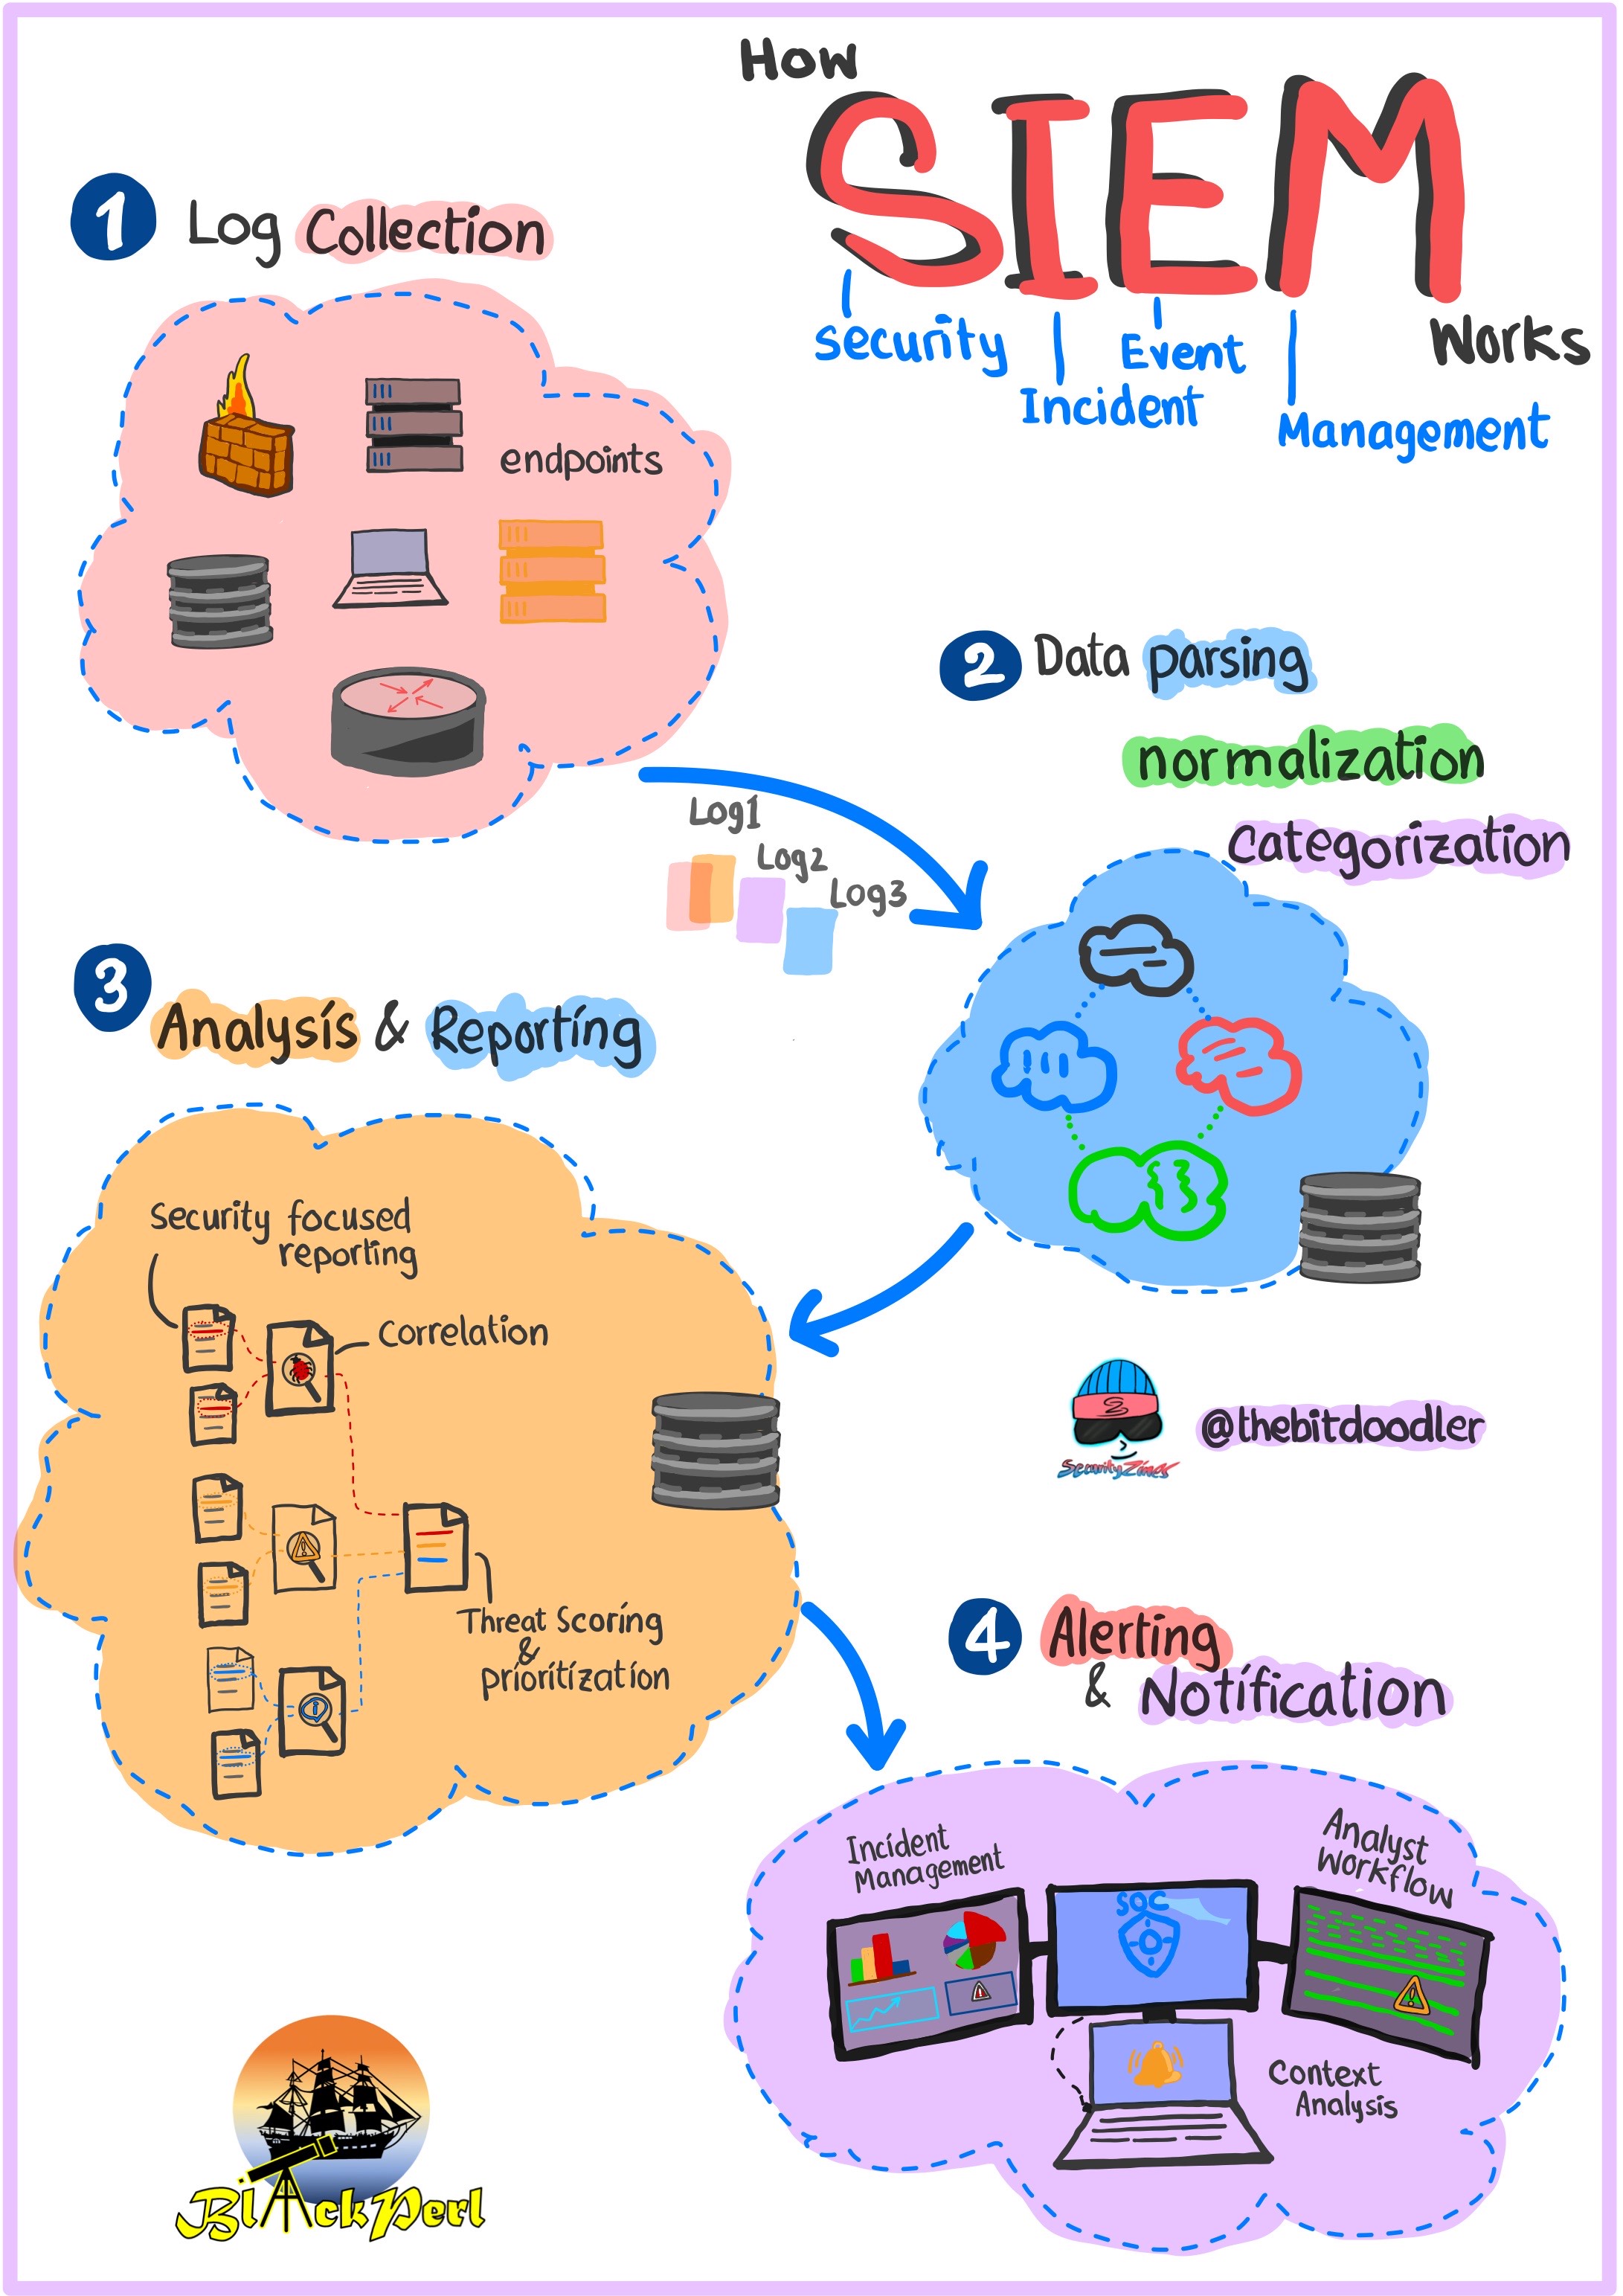 How
SIEM
Works
Security
Incident
Event
Management
1 Log Collection
endpoints
Log1
Log2
Log3
2 Data parsing
normalization
Categorization
3 Analysis & Reporting
Security focused
reporting
Correlation
Threat Scoring
&
prioritization
SecurityZines
@thebitdoodler
4 Alerting
& Notification
Incident
Management
SOC
Analyst
Workflow
Context
Analysis
BlackPerl